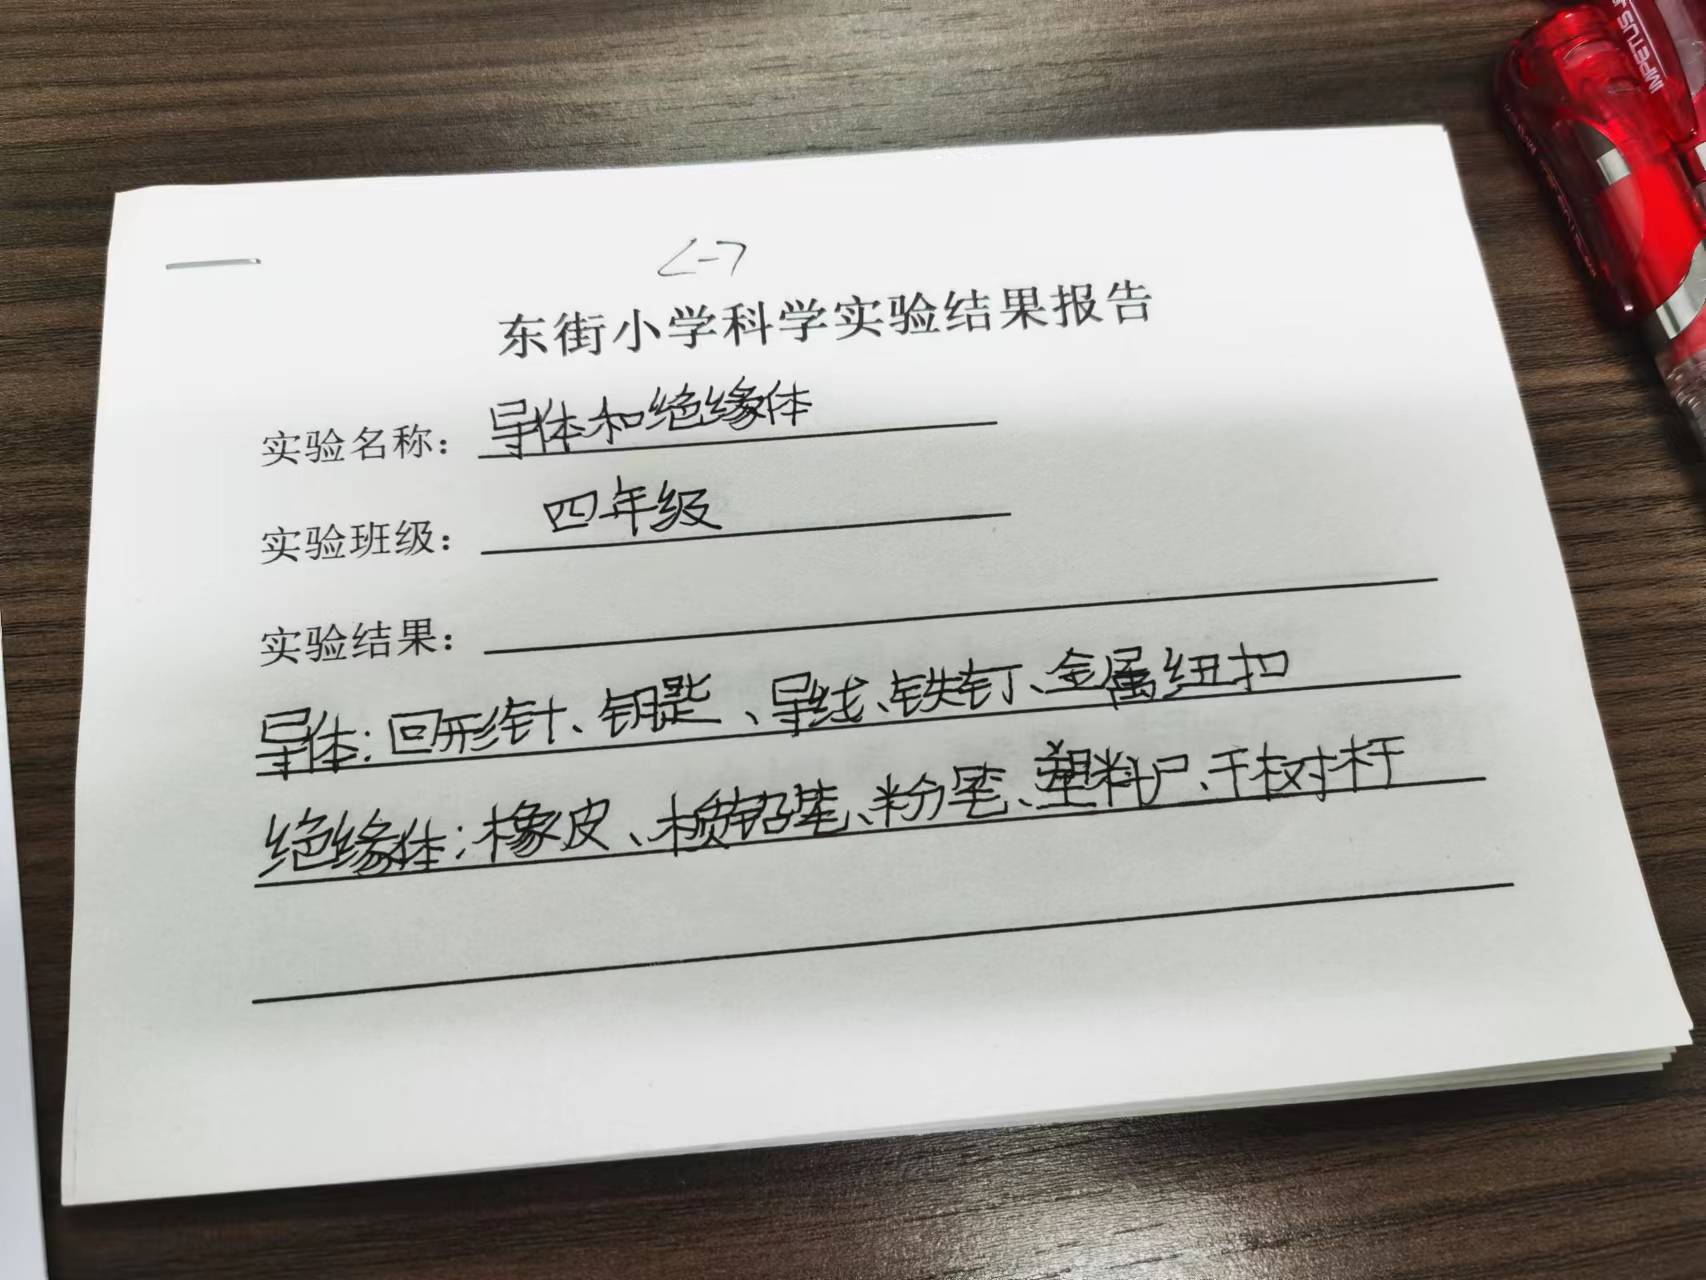 IMPETUS
<-7
东街小学科学实验结果报告
实验名称：导体和绝缘体
实验班级：四年级
实验结果：
导体：回形针、钥匙、导线、铁钉、金属纽扣
绝缘体：橡皮、铅笔、粉笔、塑料尺、干树杆